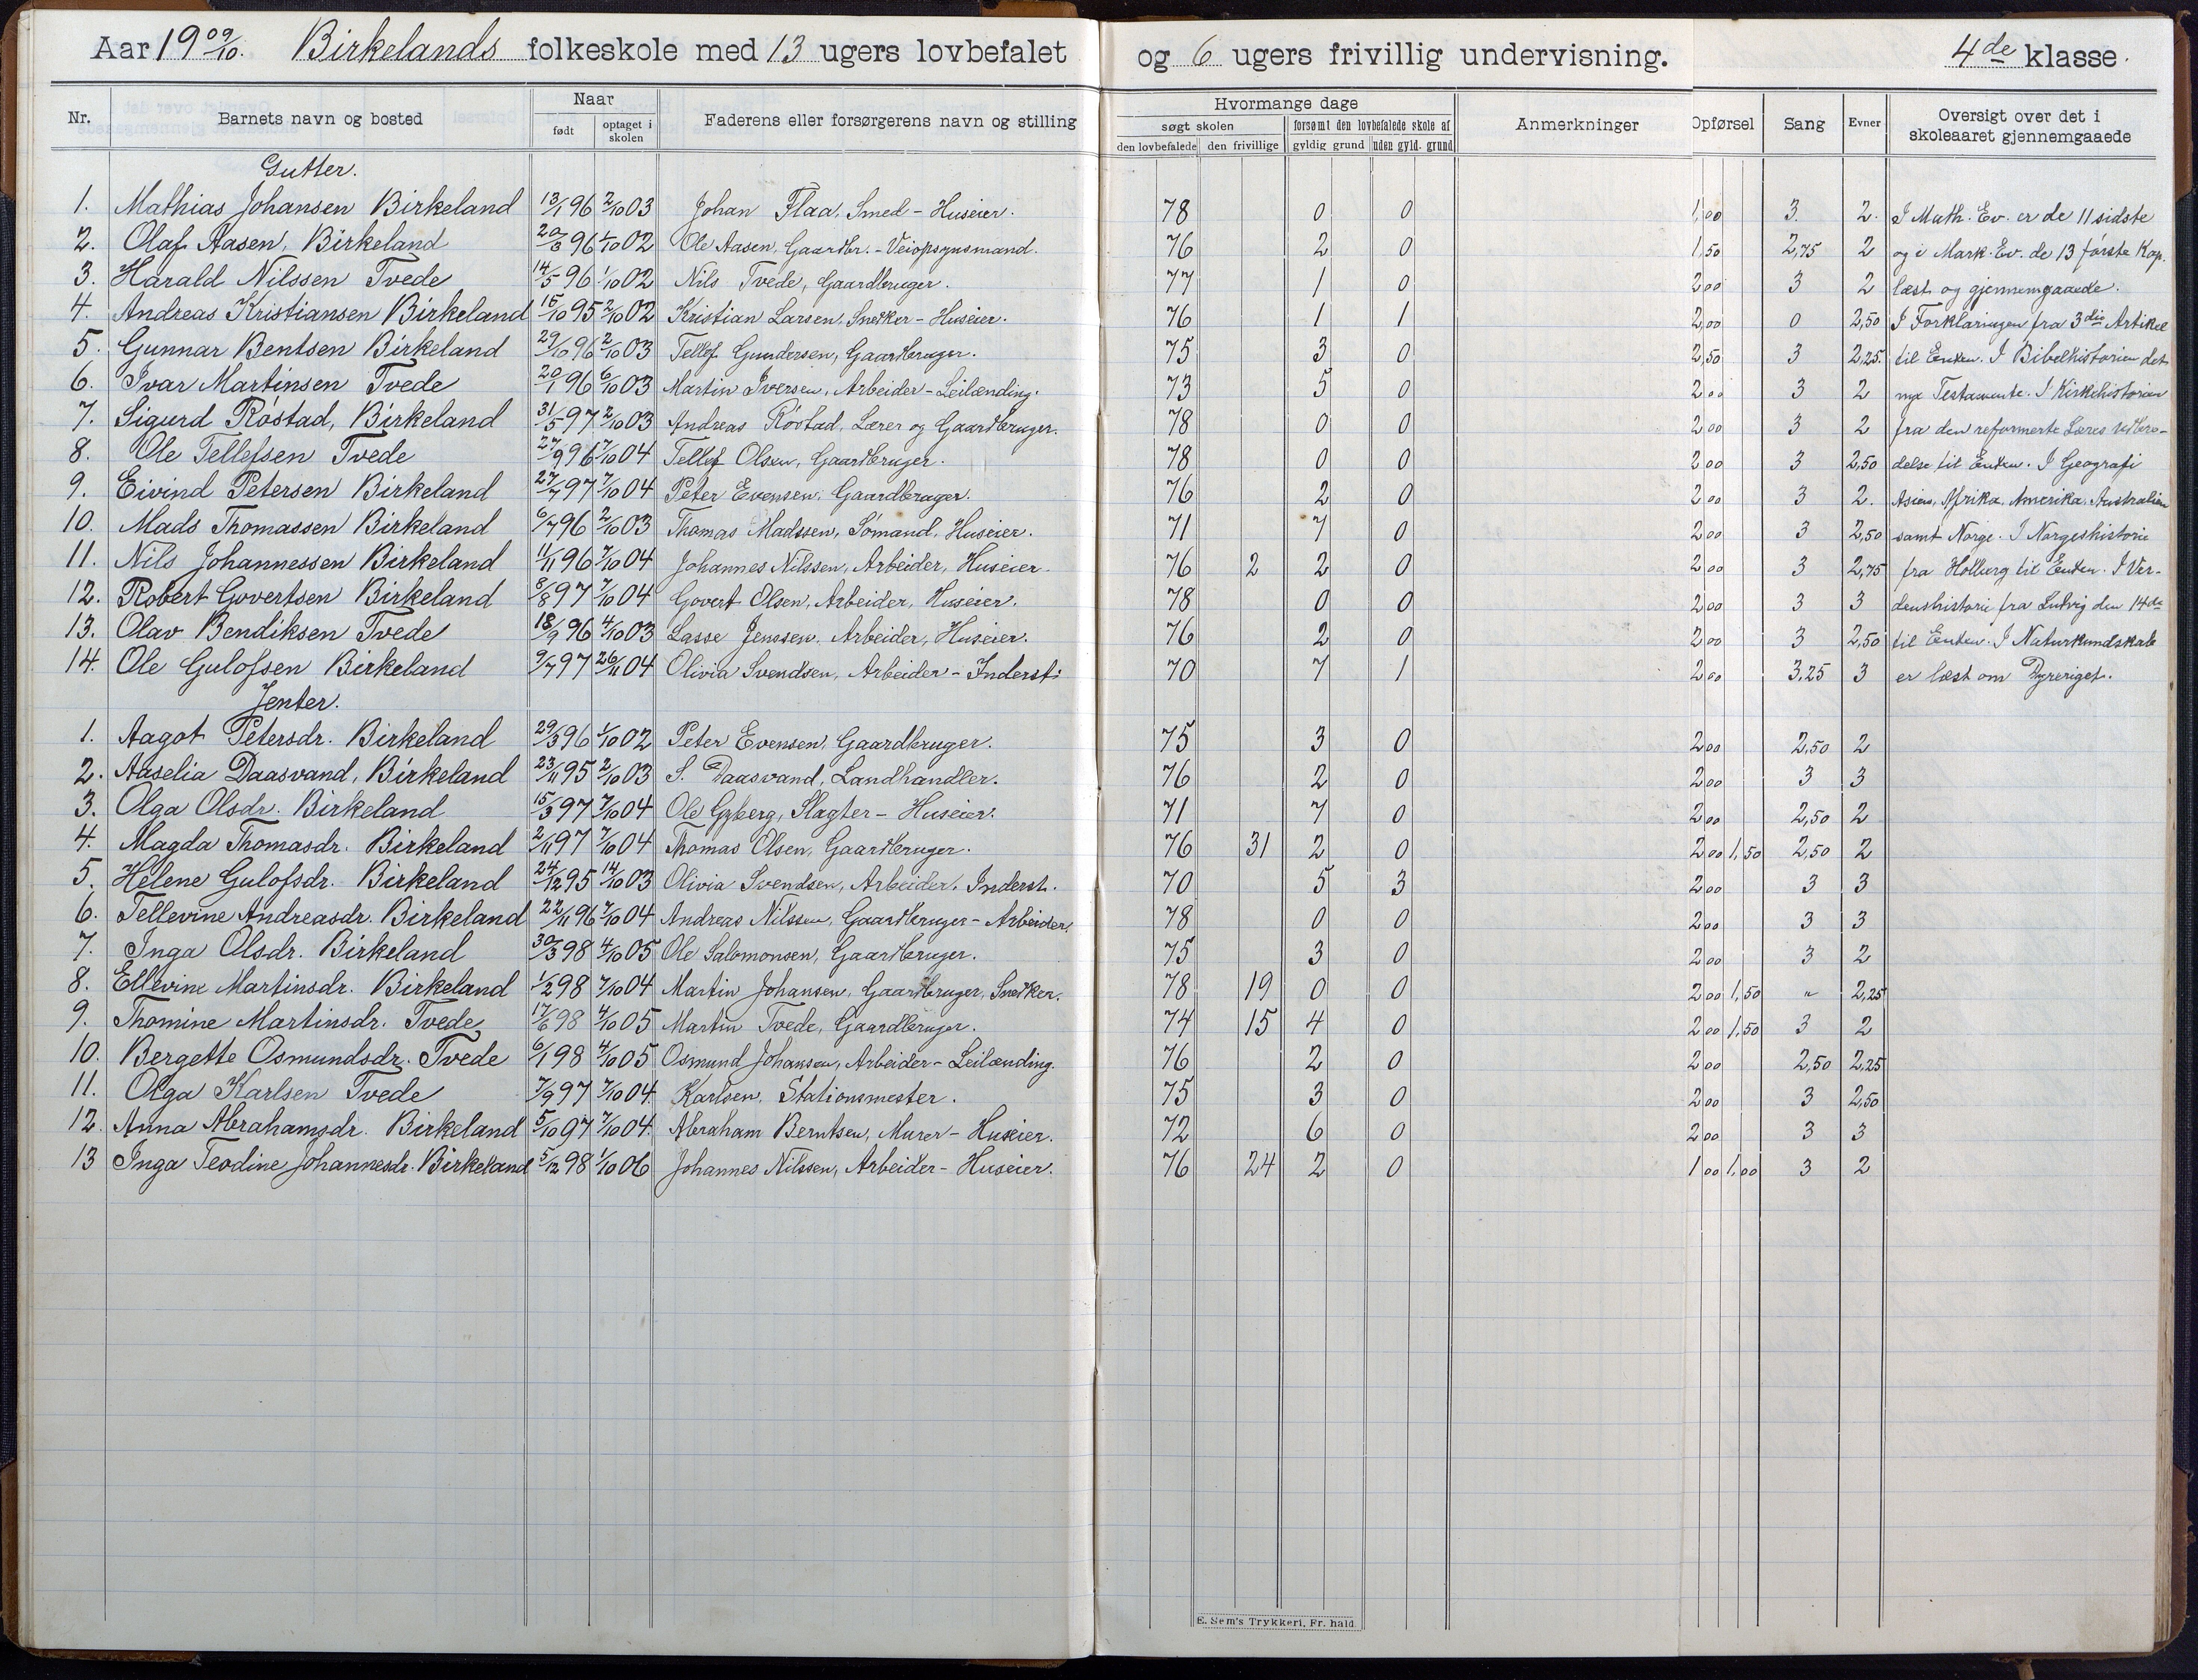 Aar 19 09/10. Birkelands folkeskole med 13 ugers lovbefalet og 6 ugers frivillig undervisning. 4de klasse.
Nr. Barnets navn og bosted Naar født optaget i skolen Faderens eller forsørgerens navn og stilling Hvormange dage søgt skolen den lovbefalede den frivillige forsømt den lovbefalede skole af gyldig grund uden gyld. grund Anmerkninger Opførsel Sang Evner Oversigt over det i skoleaaret gjennemgaaede
Gutter.
1. Mathias Johansen Birkeland 13/1 96 2/10 03 Johan Flaa, Smed - Huseier. 78 0 0 1,00 3. 2. I Math. Ev. er de 11 sidste
2. Olaf Aasen, Birkeland 20/3 96 1/10 02 Ole Aasen, Gaardbr. - Veiopsynsmand. 76 2 0 1,50 2,75 2 og i Mark. Ev. de 13 første Kap.
3. Harald Nilssen Tvede 14/5 96 1/10 02 Nils Tvede, Gaardbruger. 77 1 0 2,00 3 2 læst og gjennemgaaede.
4. Andreas Kristiansen Birkeland 15/10 95 2/10 02 Kristian Larsen, Snedker - Huseier. 76 1 1 2,00 0 2,50 I Forklaringen fra 3die Artikel
5. Gunnar Bentsen Birkeland 29/10 96 2/10 03 Tellef Gundersen, Gaardbruger. 75 3 0 2,50 3 2,25 til Enden. I Bibelhistorien det
6. Ivar Martinsen Tvede 20/1 96 6/10 03 Martin Iversen, Arbeider - Leilænding. 73 5 0 2,00 3 2 nye Testamente. I Kirkehistorien
7. Sigurd Røstad, Birkeland 31/5 97 2/10 03 Andreas Røstad, Lærer og Gaardbruger. 78 0 0 2 00 3 2 fra den reformerte Læres Udbre-
8. Ole Tellefsen Tvede 27/9 96 7/10 04 Tellef Olsen, Gaardbruger. 78 0 0 2 00 3 2,50 delse til Enden. I Geografi
9. Eivind Petersen Birkeland 27/7 97 7/10 04 Peter Evensen, Gaardbruger. 76 2 0 2 00 3 2. Asien, Afrika, Amerika, Australien
10. Mads Thomassen Birkeland 6/7 96 2/10 03 Thomas Madssen, Sømand, Huseier. 71 7 0 2 00 3 2,50 samt Norge. I Norgeshistorie
11. Nils Johannessen Birkeland 11/1 96 7/10 04 Johannes Nilssen, Arbeider, Huseier. 76 2 2 0 2 00 3 2,75 fra Holberg til Enden. I Ver-
12. Robert Govertsen Birkeland 8/8 97 7/10 04 Govert Olsen, Arbeider, Huseier. 78 0 0 2 00 3 3 denshistorie fra Ludvig den 14de
13. Olav Bendiksen Tvede 18/9 96 4/10 03 Lasse Jenssen, Arbeider, Huseier. 76 2 0 2 00 3 2,50 til Enden. I Naturkundskab
14. Ole Gulofsen Birkeland 9/7 97 26/11 04 Olivia Svendsen, Arbeider - Inderst. 70 7 1 2 00 3,25 3 er læst om Dyreriget.
Jenter.
1. Aagot Petersdr. Birkeland 29/3 96 1/10 02 Peter Evensen, Gaardbruger. 75 3 0 2 00 2,50 2
2. Aaselia Daasvand, Birkeland 23/11 95 2/10 03 S. Daasvand, Landhandler. 76 2 0 2 00 3 3
3. Olga Olsdr. Birkeland 15/3 97 7/10 04 Ole Gyberg, Slagter - Huseier. 71 7 0 2 00 2,50 2
4. Magda Thomasdr. Birkeland 2/11 97 7/10 04 Thomas Olsen, Gaardbruger. 76 31 2 0 2 00 1,50 2,50 2
5. Helene Gulofsdr. Birkeland 24/12 95 14/10 03 Olivia Svendsen, Arbeider, Inderst. 70 5 3 2 00 3 3
6. Tellevine Andreasdr. Birkeland 22/11 96 7/10 04 Andreas Nilssen, Gaardbruger - Arbeider. 78 0 0 2 00 3 3
7. Inga Olsdr. Birkeland 30/3 98 4/10 05 Ole Salomonsen, Gaardbruger. 75 3 0 2 00 3 2
8. Ellevine Martinsdr. Birkeland 1/2 98 7/10 04 Martin Johansen, Gaardbruger, Snedker. 78 19 0 0 2 00 1,50 " 2,25
9. Thomine Martinsdr. Tvede 17/6 98 4/10 05 Martin Tvede, Gaardbruger. 74 15 4 0 2 00 1,50 3 2
10. Bergette Osmundsdr. Tvede 6/1 98 4/10 05 Osmund Johansen, Arbeider - Leilænding. 76 2 0 2 00 2,50 2,25
11. Olga Karlsen Tvede 7/9 97 7/10 04. Karlsen, Stationsmester. 75 3 0 2 00 3 2,50
12. Anna Abrahamsdr. Birkeland 5/10 97 7/10 04. Abraham Berntsen, Murer - Huseier. 72 6 0 2 00 3 3
13 Inga Teodine Johannesdr. Birkeland 5/12 98 1/10 06 Johannes Nilssen, Arbeider - Huseier. 76 24 2 0 1 00 1,00 3 2
E. Sem's Trykkeri, Fr. hald